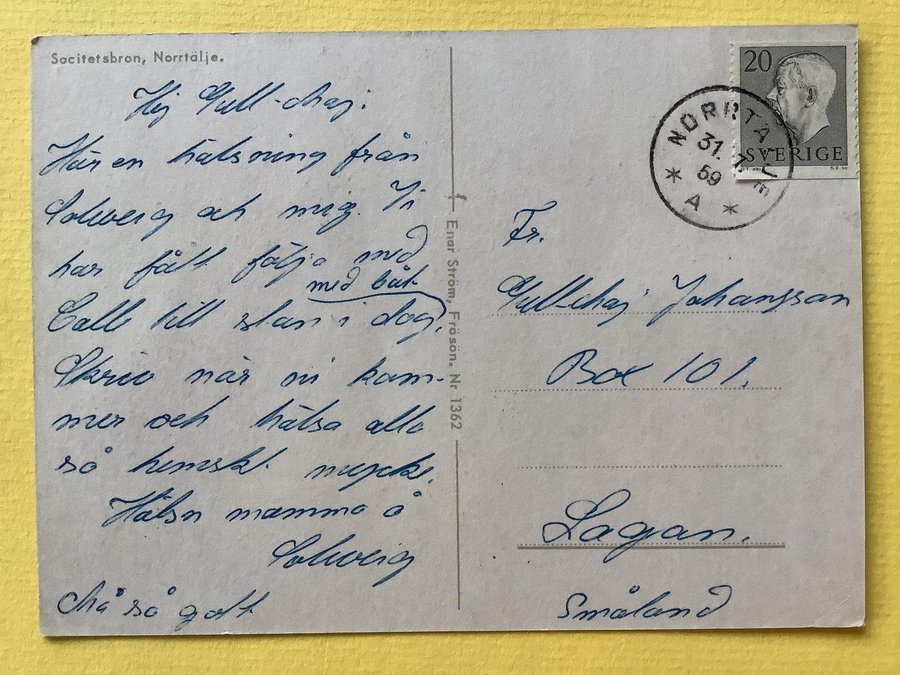 Socitetsbron, Norrtälje.
Hej Gull-Maj!
Här en hälsning från
Solweig och mig. Vi
har fått följa med
med båt
Calle till stan i dag,
Skriv när ni kom-
mer och hälsa alla
så hemskt mycke.
Hälsn mamma å
Solweig
Må så gott
Enar Ström, Frösön. Nr 1362
20
SVERIGE
NORRTÄLJE
31. 7.
59
A
Fr.
Gull-Maj Johansson
Box 101.
Lagan.
Småland